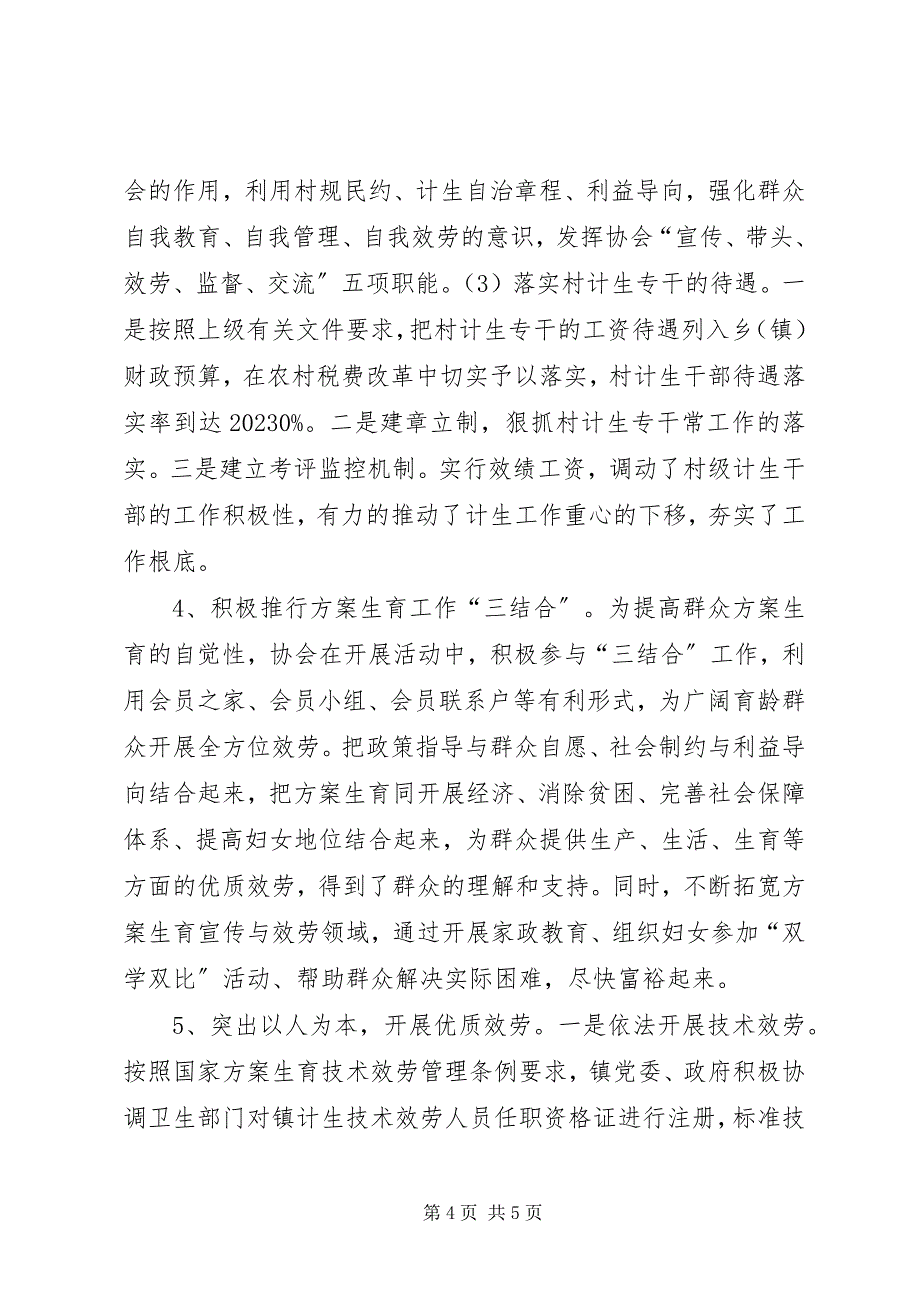 会的作用，利用村规民约、计生自治章程、利益导向，强化群众
自我教育、自我管理、自我效劳的意识，发挥协会“宣传、带头、
效劳、监督、交流〞五项职能。（3）落实村计生专干的待遇。一
是按照上级有关文件要求，把村计生专干的工资待遇列入乡（镇）
财政预算，在农村税费改革中切实予以落实，村计生干部待遇落
实率到达 20230%。二是建章立制，狠抓村计生专干常工作的落
实。三是建立考评监控机制。实行效绩工资，调动了村级计生干
部的工作积极性，有力的推动了计生工作重心的下移，夯实了工
作根底。
4、积极推行方案生育工作“三结合〞。为提高群众方案生
育的自觉性，协会在开展活动中，积极参与“三结合〞工作，利
用会员之家、会员小组、会员联系户等有利形式，为广阔育龄群
众开展全方位效劳。把政策指导与群众自愿、社会制约与利益导
向结合起来，把方案生育同开展经济、消除贫困、完善社会保障
体系、提高妇女地位结合起来，为群众提供生产、生活、生育等
方面的优质效劳，得到了群众的理解和支持。同时，不断拓宽方
案生育宣传与效劳领域，通过开展家政教育、组织妇女参加“双
学双比〞活动、帮助群众解决实际困难，尽快富裕起来。
5、突出以人为本，开展优质效劳。一是依法开展技术效劳。
按照国家方案生育技术效劳管理条例要求，镇党委、政府积极协
调卫生部门对镇计生技术效劳人员任职资格证进行注册，标准技
第 4 页 共 5 页